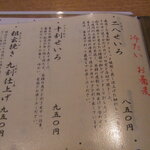 冷たい お蕎麦
二八せいろ
八五〇円
十割せいろ
九五〇円
粗挽き 九割仕上げ
九五〇円